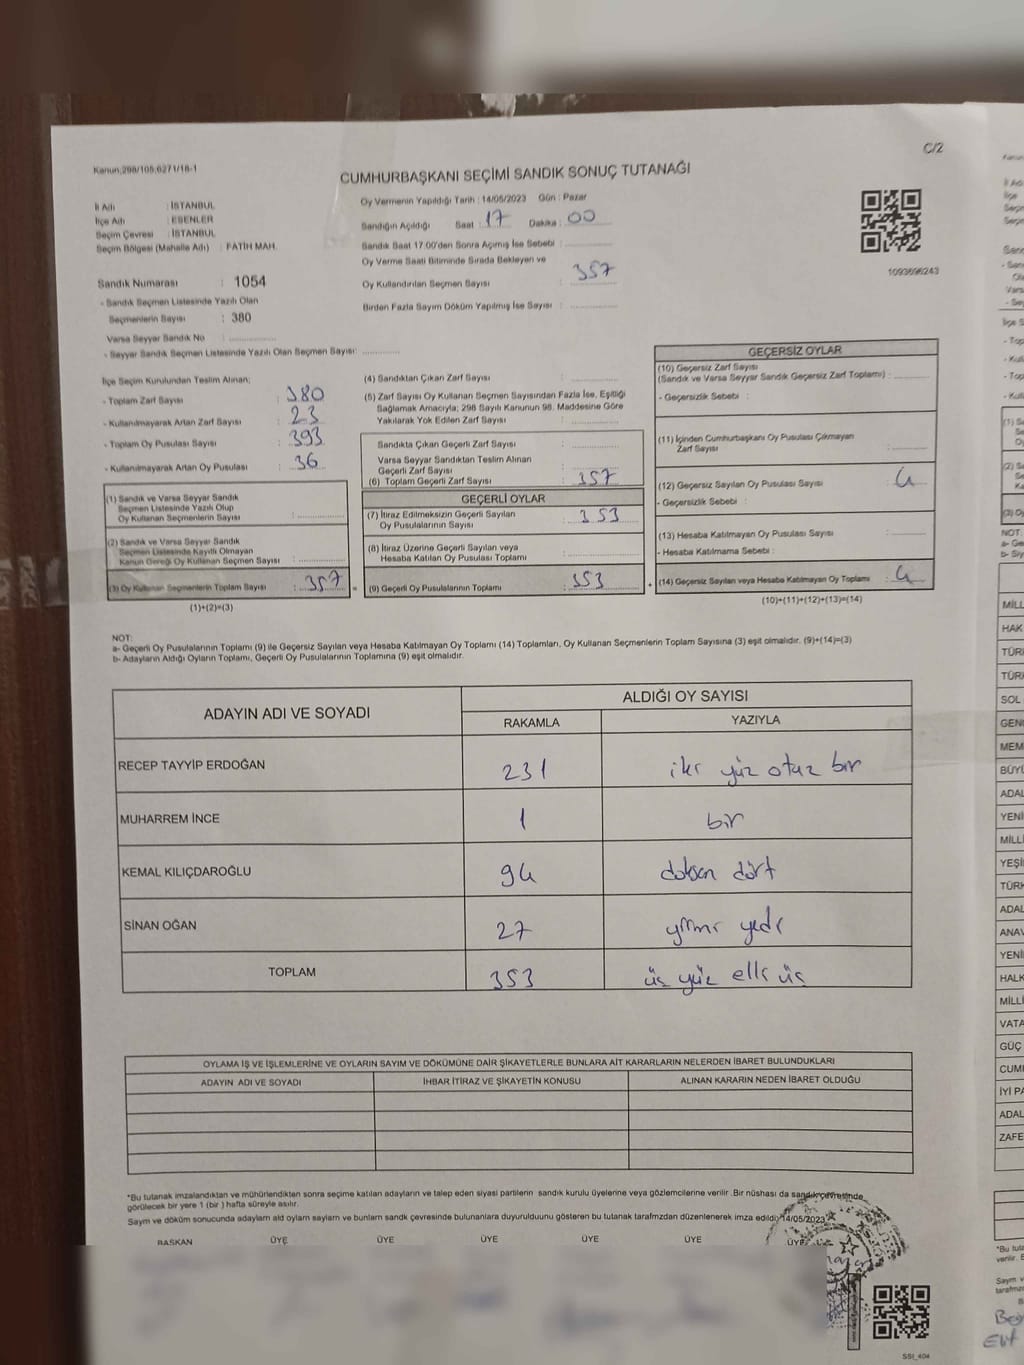 C/2
Kanun,298/105,6271/18-1
CUMHURBAŞKANI SEÇİMİ SANDIK SONUÇ TUTANAĞI
İl Adı : İSTANBUL
İlçe Adı : ESENLER
Seçim Çevresi : İSTANBUL
Seçim Bölgesi (Mahalle Adı) : FATİH MAH.
Oy Vermenin Yapıldığı Tarih : 14/05/2023 Gün : Pazar
Sandığın Açıldığı Saat : 17 Dakika : 00
Sandık Saat 17.00'den Sonra Açımış İse Sebebi :
Oy Verme Saati Bitiminde Sırada Bekleyen ve
Oy Kullandırılan Seçmen Sayısı : 357
Birden Fazla Sayım Döküm Yapılmış İse Sayısı :
1093696243
Sandık Numarası : 1054
- Sandık Seçmen Listesinde Yazılı Olan
Seçmenlerin Sayısı : 380
Varsa Seyyar Sandık No :
- Seyyar Sandık Seçmen Listesinde Yazılı Olan Seçmen Sayısı:
İlçe Seçim Kurulundan Teslim Alınan;
- Toplam Zarf Sayısı : 380
- Kullanılmayarak Artan Zarf Sayısı : 23
- Toplam Oy Pusulası Sayısı : 393
- Kullanılmayarak Artan Oy Pusulası : 36
(1) Sandık ve Varsa Seyyar Sandık
Seçmen Listesinde Yazılı Olup
Oy Kullanan Seçmenlerin Sayısı :
(2) Sandık ve Varsa Seyyar Sandık
Seçmen Listesinde Kayıtlı Olmayan
Kanun Gereği Oy Kullanan Seçmen Sayısı :
(3) Oy Kullanan Seçmenlerin Toplam Sayısı : 357 =
(1)+(2)=(3)
(4) Sandıktan Çıkan Zarf Sayısı :
(5) Zarf Sayısı Oy Kullanan Seçmen Sayısından Fazla İse, Eşitliği
Sağlamak Amacıyla; 298 Sayılı Kanunun 98. Maddesine Göre
Yakılarak Yok Edilen Zarf Sayısı :
Sandıkta Çıkan Geçerli Zarf Sayısı :
Varsa Seyyar Sandıktan Teslim Alınan
Geçerli Zarf Sayısı :
(6) Toplam Geçerli Zarf Sayısı : 357
GEÇERLİ OYLAR
(7) İtiraz Edilmeksizin Geçerli Sayılan
Oy Pusulalarının Sayısı : 353
(8) İtiraz Üzerine Geçerli Sayılan veya
Hesaba Katılan Oy Pusulası Toplamı :
(9) Geçerli Oy Pusulalarının Toplamı : 353 +
GEÇERSİZ OYLAR
(10) Geçersiz Zarf Sayısı
(Sandık ve Varsa Seyyar Sandık Geçersiz Zarf Toplamı) :
- Geçersizlik Sebebi :
(11) İçinden Cumhurbaşkanı Oy Pusulası Çıkmayan
Zarf Sayısı :
(12) Geçersiz Sayılan Oy Pusulası Sayısı : 4
- Geçersizlik Sebebi :
(13) Hesaba Katılmayan Oy Pusulası Sayısı :
- Hesaba Katılmama Sebebi :
(14) Geçersiz Sayılan veya Hesaba Katılmayan Oy Toplamı : 4
(10)+(11)+(12)+(13)=(14)
NOT:
a- Geçerli Oy Pusulalarının Toplamı (9) ile Geçersiz Sayılan veya Hesaba Katılmayan Oy Toplamı (14) Toplamları, Oy Kullanan Seçmenlerin Toplam Sayısına (3) eşit olmalıdır. (9)+(14)=(3)
b- Adayların Aldığı Oyların Toplamı, Geçerli Oy Pusulalarının Toplamına (9) eşit olmalıdır.
ADAYIN ADI VE SOYADI ALDIĞI OY SAYISI
RAKAMLA YAZIYLA
RECEP TAYYİP ERDOĞAN 231 iki yüz otuz bir
MUHARREM İNCE 1 bir
KEMAL KILIÇDAROĞLU 94 doksan dört
SİNAN OĞAN 27 yirmi yedi
TOPLAM 353 üç yüz elli üç
OYLAMA İŞ VE İŞLEMLERİNE VE OYLARIN SAYIM VE DÖKÜMÜNE DAİR ŞİKAYETLERLE BUNLARA AİT KARARLARIN NELERDEN İBARET BULUNDUKLARI
ADAYIN ADI VE SOYADI İHBAR İTİRAZ VE ŞİKAYETİN KONUSU ALINAN KARARIN NEDEN İBARET OLDUĞU
*Bu tutanak imzalandıktan ve mühürlendikten sonra seçime katılan adayların ve talep eden siyasi partilerin sandık kurulu üyelerine veya gözlemcilerine verilir .Bir nüshası da sandık çevresinde
görülecek bir yere 1 (bir ) hafta süreyle asılır.
Sayım ve döküm sonucunda adayların ald oyların sayların ve bunların sandk çevresinde bulunanlara duyurulduunu gösteren bu tutanak tarafmzdan düzenlenerek imza edildi. 14/05/2023
BAŞKAN ÜYE ÜYE ÜYE ÜYE ÜYE ÜYE
SSI_404
MİLL
HAK
TÜRK
TÜRK
SOL
GENÇ
MEM
BÜYÜ
ADAL
YENİ
MİLLİ
YEŞİ
TÜRK
ADAL
ANAV
YENİ
HALK
MİLLİ
VATA
GÜÇ
CUMH
İYİ PA
ADAL
ZAFE